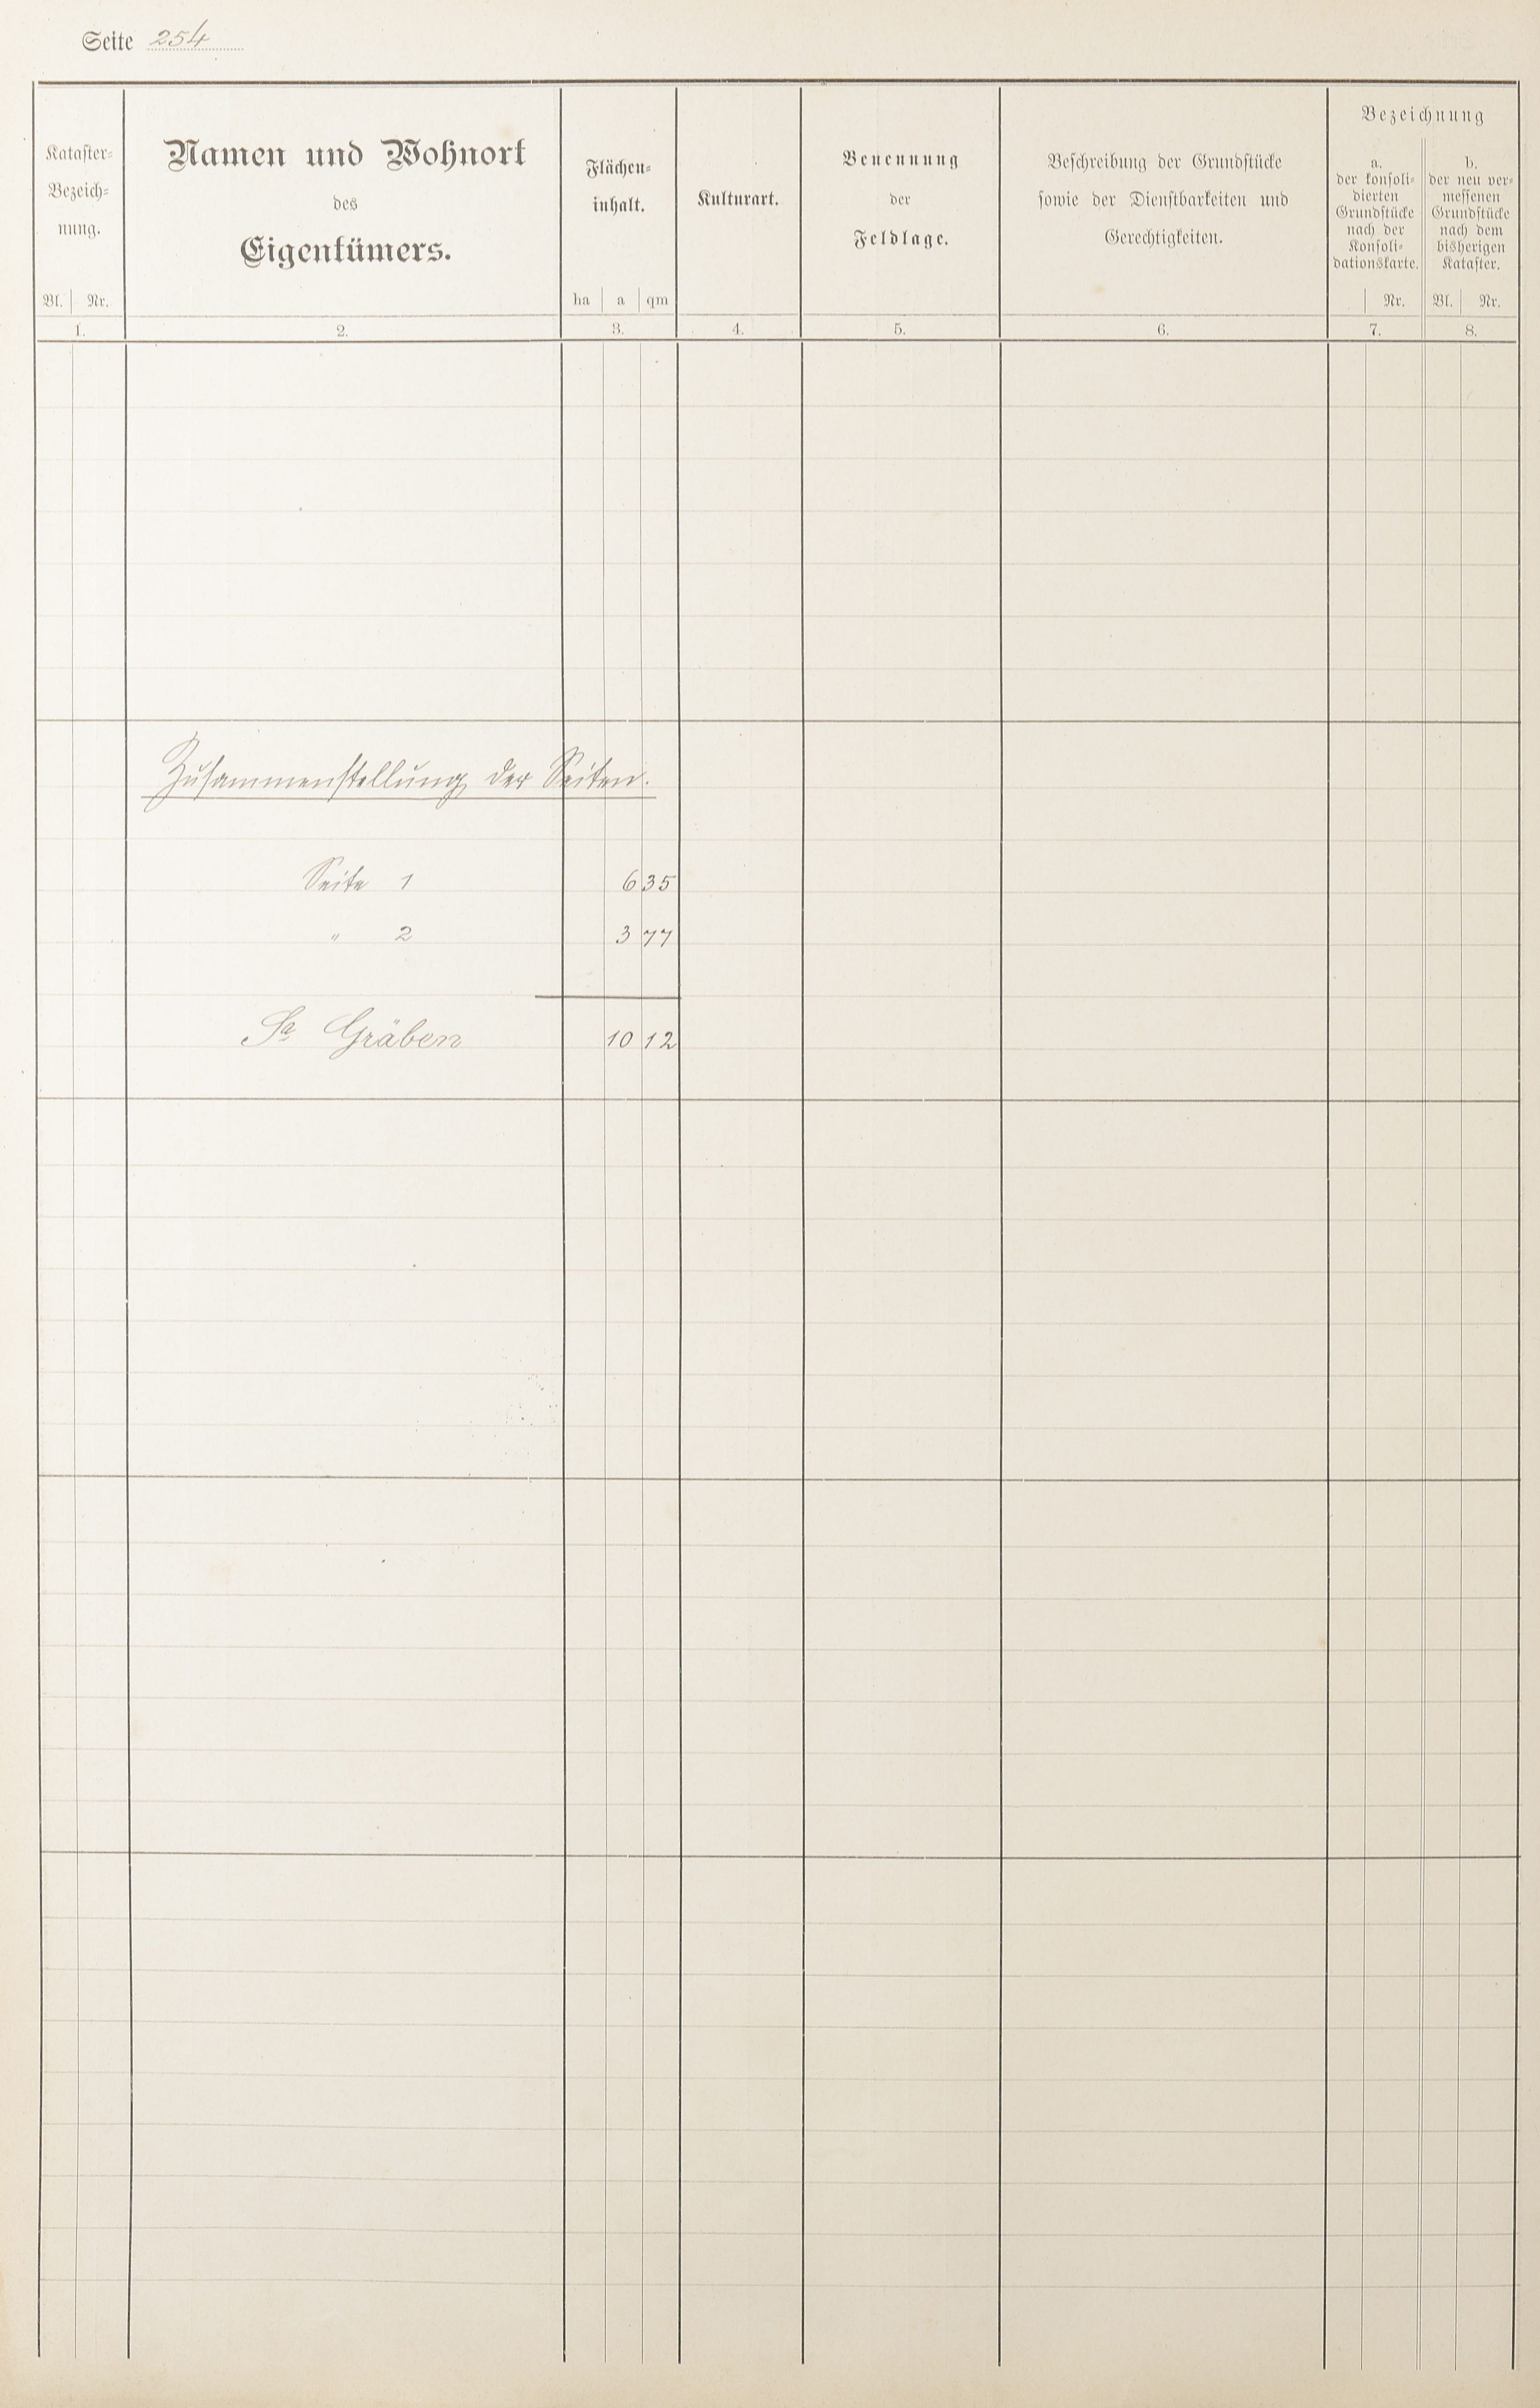 Seite 254
Kataster-
Bezeich-
nung.
Bl. Nr.
1.
Namen und Wohnort
des
Eigentümers.
2.
Flächen-
inhalt.
ha a qm
3.
Kulturart.
4.
Benennung
der
Feldlage.
5.
Beschreibung der Grundstücke
sowie der Dienstbarkeiten und
Gerechtigkeiten.
6.
Bezeichnung
a.
der konsoli-
dierten
Grundstücke
nach der
Konsoli-
dationskarte.
Nr.
7.
b.
der neu ver-
messenen
Grundstücke
nach dem
bisherigen
Kataster.
Bl. Nr.
8.
Zusammenstellung der Seiten.
Seite 1 6 35
" 2 3 77
Sa Gräben 10 12